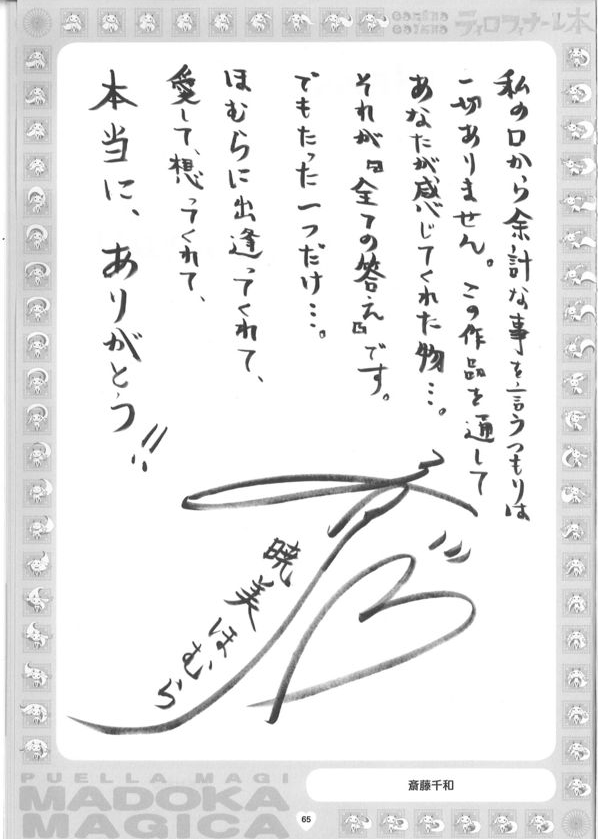 ティロフィナーレ本
私の口から余計な事を言うつもりは
一切ありません。この作品を通して
あなたが感じてくれた物…。
それが『全ての答え』です。
でもたった一つだけ…。
ほむらに出逢ってくれて、
愛して、想ってくれて、
本当に、ありがとう!!
暁美ほむら
斎藤千和
PUELLA MAGI
MADOKA
MAGICA
65